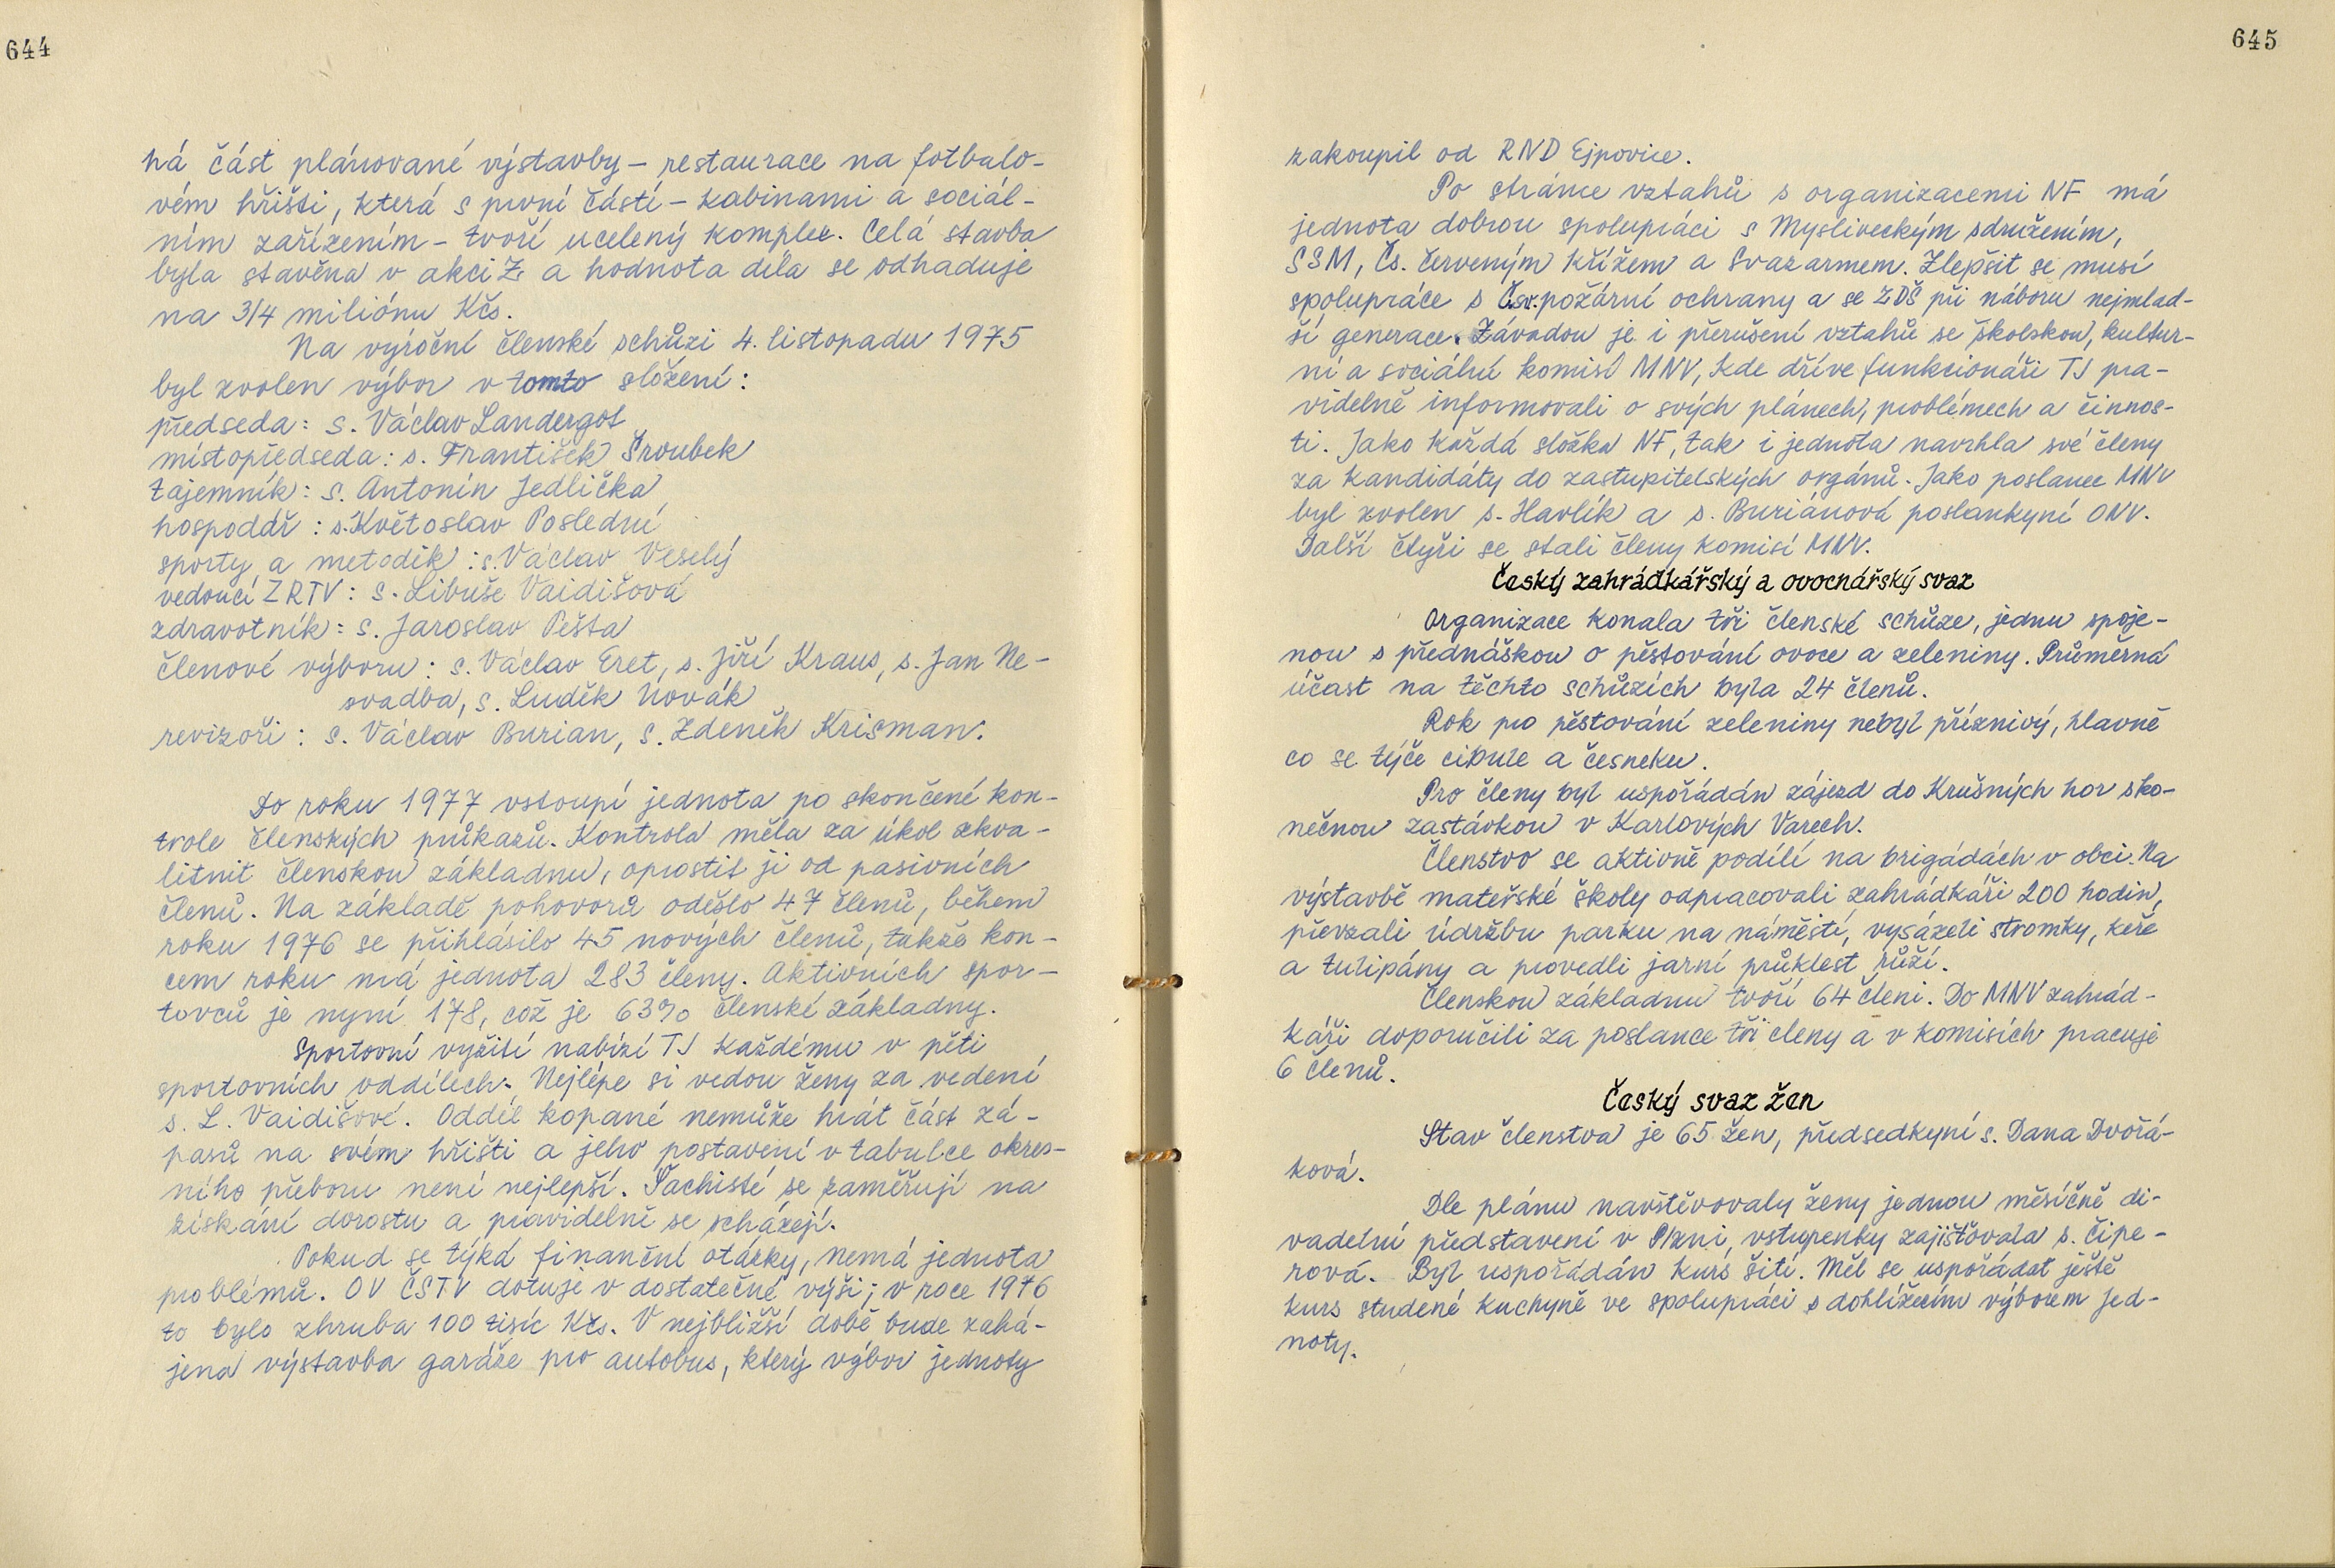 644
ná část plánované výstavby - restaurace na fotbalo-
vém hřišti, která s první částí - kabinami a sociál-
ním zařízením - tvoří ucelený komplex. Celá stavba
byla stavěna v akci Z a hodnota díla se odhaduje
na 3/4 miliónu Kčs.
Na výroční členské schůzi 4. listopadu 1975
byl zvolen výbor v tomto složení:
předseda: s. Václav Landergot
místopředseda: s. František Šroubek
tajemník: s. Antonín Jedlička
hospodář: s. Květoslav Poslední
sporty a metodik: s. Václav Veselý
vedoucí ZRTV: s. Libuše Vaidišová
zdravotník: s. Jaroslav Pešta
členové výboru: s. Václav Eret, s. Jiří Kraus, s. Jan Ne-
svadba, s. Luděk Novák
revizoři: s. Václav Burian, s. Zdeněk Krisman.
Do roku 1977 vstoupí jednota po skončené kon-
trole členských průkazů. Kontrola měla za úkol zkva-
litnit členskou základnu, oprostit ji od pasivních
členů. Na základě pohovorů odešlo 47 členů, během
roku 1976 se přihlásilo 45 nových členů, takže kon-
cem roku má jednota 283 členy. Aktivních spor-
tovců je nyní 178, což je 63% členské základny.
Sportovní vyžití nabízí TJ každému v pěti
sportovních oddílech. Nejlépe si vedou ženy za vedení
s. L. Vaidišové. Oddíl kopané nemůže hrát část zá-
pasů na svém hřišti a jeho postavení v tabulce okres-
ního přeboru není nejlepší. Šachisté se zaměřují na
získání dorostu a pravidelně se scházejí.
Pokud se týká finanční otázky, nemá jednota
problémů. OV ČSTV dotuje v dostatečné výši; v roce 1976
to bylo zhruba 100 tisíc Kčs. V nejbližší době bude zahá-
jena výstavba garáže pro autobus, který výbor jednoty
645
zakoupil od RND Ejpovice.
Po stránce vztahů s organizacemi NF má
jednota dobrou spolupráci s Mysliveckým sdružením,
SSM, Čs. červeným křížem a Svazarmem. Zlepšit se musí
spolupráce s Čsv. požární ochrany a se ZDŠ při náboru nejmlad-
ší generace. Závadou je i přerušení vztahů se školskou, kultur-
ní a sociální komisí MNV, kde dříve funkcionáři TJ pra-
videlně informovali o svých plánech, problémech a činnos-
ti. Jako každá složka NF, tak i jednota navrhla své členy
za kandidáty do zastupitelských orgánů. Jako poslanec MNV
byl zvolen s. Havlík a s. Buriánová poslankyní ONV.
Další čtyři se stali členy komisí MNV.
Český zahrádkářský a ovocnářský svaz
Organizace konala tři členské schůze, jednu spoje-
nou s přednáškou o pěstování ovoce a zeleniny. Průměrná
účast na těchto schůzích byla 24 členů.
Rok pro pěstování zeleniny nebyl příznivý, hlavně
co se týče cibule a česneku.
Pro členy byl uspořádán zájezd do Krušných hor sko-
nečnou zastávkou v Karlových Varech.
Členstvo se aktivně podílí na brigádách v obci. Na
výstavbě mateřské školy odpracovali zahrádkáři 200 hodin,
převzali údržbu parku na náměstí, vysázeli stromky, keře
a tulipány a provedli jarní průklest růží.
Členskou základnu tvoří 64 členi. Do MNV zahrád-
káři doporučili za poslance tři členy a v komisích pracuje
6 členů.
Český svaz žen
Stav členstva je 65 žen, předsedkyní s. Dana Dvořá-
ková.
Dle plánu navštěvovaly ženy jednou měsíčně di-
vadelní představení v Plzni, vstupenky zajišťovala s. Čipe-
rová. Byl uspořádán kurs šití. Měl se uspořádat ještě
kurs studené kuchyně ve spolupráci s dohlížecím výborem Jed-
noty.